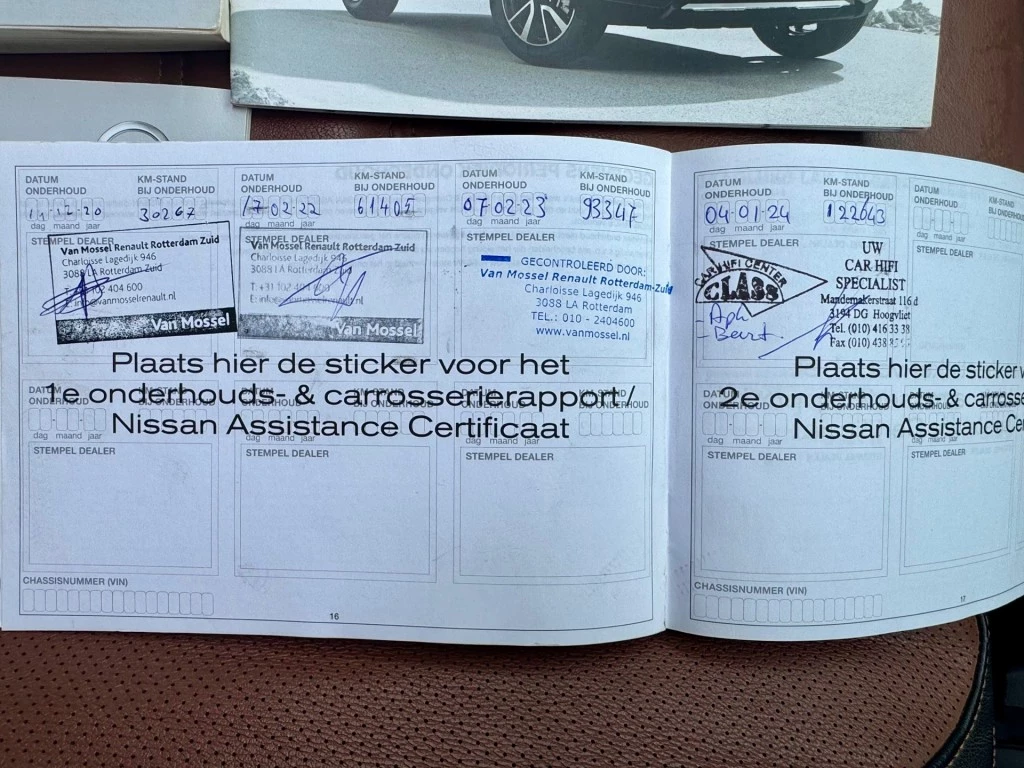 DATUM ONDERHOUD
KM-STAND BIJ ONDERHOUD
11-12-20
30267
dag maand jaar
STEMPEL DEALER
Van Mossel Renault Rotterdam Zuid
Charloisse Lagedijk 946
3088 LA Rotterdam Zuid
404 600
info@vanmosselrenault.nl
Van Mossel
DATUM ONDERHOUD
KM-STAND BIJ ONDERHOUD
17-02-22
61405
dag maand jaar
STEMPEL DEALER
Van Mossel Renault Rotterdam Zuid
Charloisse Lagedijk 946
3088 LA Rotterdam
Van Mossel
DATUM ONDERHOUD
KM-STAND BIJ ONDERHOUD
07-02-23
93347
dag maand jaar
STEMPEL DEALER
GECONTROLEERD DOOR:
Van Mossel Renault Rotterdam-Zuid
Charloisse Lagedijk 946
3088 LA Rotterdam
TEL.: 010 - 2404600
www.vanmossel.nl
Plaats hier de sticker voor het
1e onderhouds- & carrosserierapport /
Nissan Assistance Certificaat
DATUM ONDERHOUD
KM-STAND BIJ ONDERHOUD
dag maand jaar
STEMPEL DEALER
DATUM ONDERHOUD
KM-STAND BIJ ONDERHOUD
dag maand jaar
STEMPEL DEALER
DATUM ONDERHOUD
KM-STAND BIJ ONDERHOUD
dag maand jaar
STEMPEL DEALER
CHASSISNUMMER (VIN)
16
DATUM ONDERHOUD
KM-STAND BIJ ONDERHOUD
04-01-24
122643
dag maand jaar
STEMPEL DEALER
CAR HIFI CENTER
CLASS
UW
CAR HIFI
SPECIALIST
Mandemakerstraat 116 d
3194 DG Hoogvliet
Tel. (010) 416 33 38
Fax (010) 438
- Apk
- Beurt.
DATUM ONDERHOUD
KM-STAND
BIJ ONDERHO
dag maand jaar
STEMPEL DEALER
Plaats hier de sticker
2e onderhouds- & carrosse
Nissan Assistance Cer
DATUM ONDERHOUD
dag maand jaar
STEMPEL DEALER
STEMPEL DEALER
CHASSISNUMMER (VIN)
17